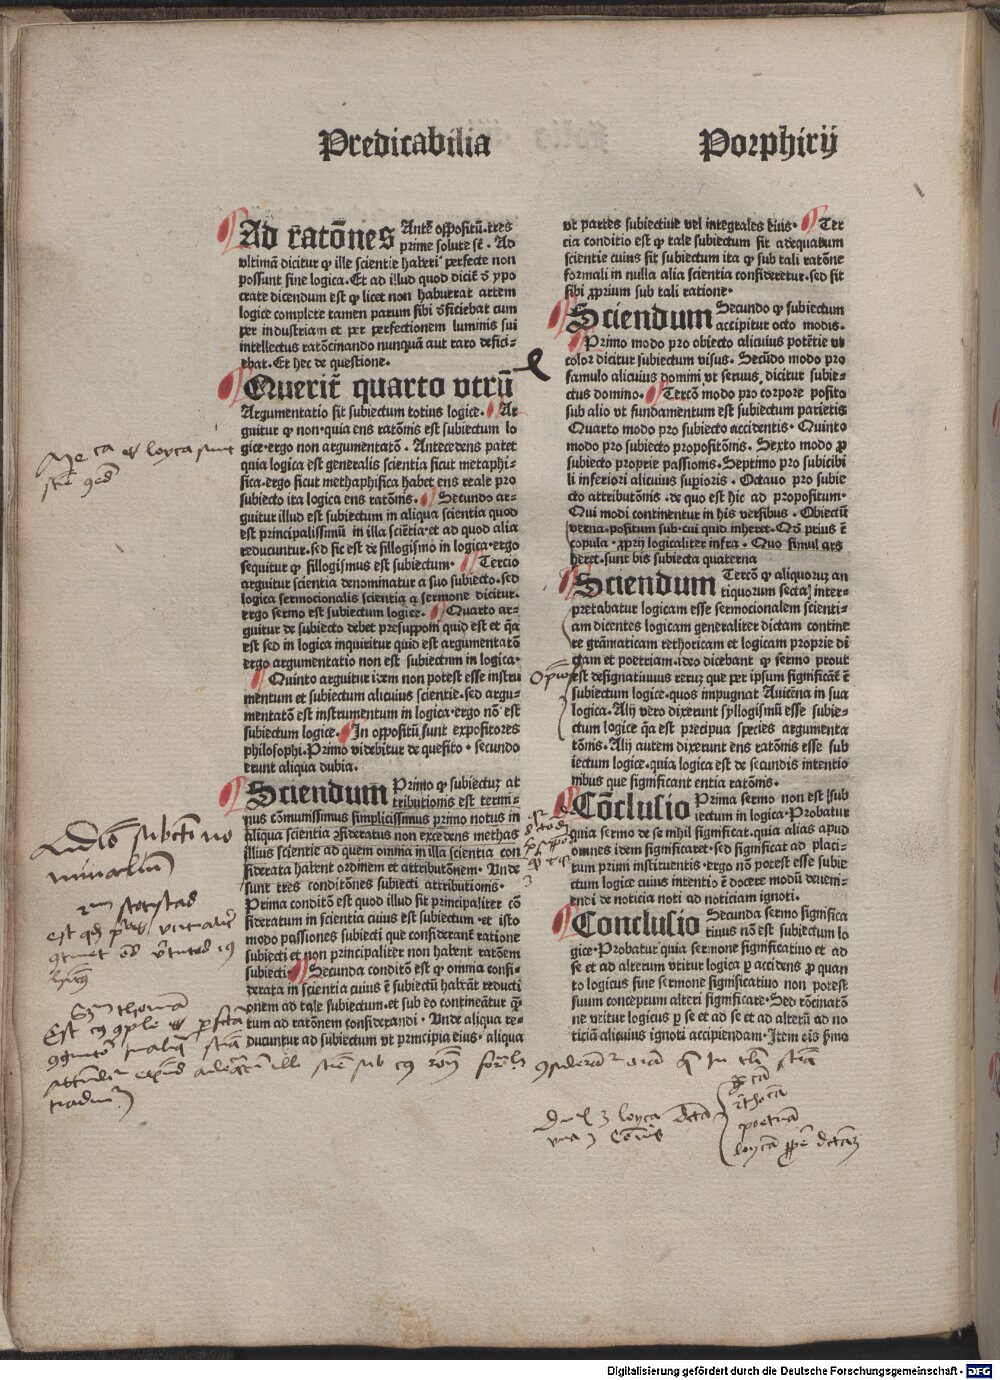 Predicabilia Porphirij
Ad r̄atōnes Ante oppositū.tres
prime solute st̄. Ad
vltimā dicitur ꝙ ille scientie haberi perfecte non
possunt sine logica. Et ad illud quod dicit̄ ypo
crate dicendum est ꝙ licet non habuerat artem
logice complete tamen parum sibi deficiebat cum
per industriam et per perfectionem luminis sui
intellectus ratōcinando nunquā aut raro defici⸗
ebat. Et hec de questione.
Querit̄ quarto vtrū
Argumentatio sit subiectum totius logice. Ar
guitur ꝙ non.quia ens ratōnis est subiectum lo
gice.ergo non argumentatō. Antecedens patet
quia logica est generalis scientia sicut metaphi⸗
sica.ergo sicut methaphisica habet ens reale pro
subiecto ita logica ens ratōnis. Secundo ar⸗
guitur illud est subiectum in aliqua scientia quod
est principalissimū in illa sciētia.et ad quod alia
reducuntur.sed sic est de sillogismo in logica.ergo
sequitur ꝙ sillogismus est subiectum. Tercio
arguitur scientia denominatur a suo subiecto.sed
logica sermocionalis scientia a sermone dicitur.
ergo sermo est subiectum logice. Quarto ar⸗
guitur de subiecto debet presupponi quid est et q̄a
est sed in logica inquiritur quid est argumentatō
ergo argumentatio non est subiectum in logica.
Quinto arguitur idem non potest esse instru
mentum et subiectum alicuius scientie.sed argu⸗
mentatō est instrumentum in logica.ergo nō est
subiectum logice. In oppositū sunt expositores
philosophi.Primo videbitur de quesito. secundo
erunt aliqua dubia.
Sciendum Primo ꝙ subiectuꝫ at
tributionis est termi⸗
nus cōmunissimus simplicissimus primo notus in
aliqua scientia ꝯsideratus non excedens methas
illius scientie ad quem omnia in illa scientia con
siderata habent ordinem et attributōnem. Unde
sunt tres conditōnes subiecti attributionis.
Prima conditō est quod illud sit principaliter cō
sideratum in scientia cuius est subiectum.et isto
modo passiones subiecti que considerant̄ ratione
subiecti et non principaliter non habent ratōem
subiecti. Secunda conditō est ꝙ omnia consi⸗
derata in scientia cuius ē subiectū habeāt reducti
onem ad tale subiectum.et sub eo contineātur q̄
tum ad ratōnem considerandi. Unde aliqua re⸗
ducuntur ad subiectum vt principia eius. aliqua
vt partes subiectiue vel integrales eius. Ter
cia conditio est ꝙ tale subiectum sit adequatum
scientie cuius sit subiectum ita ꝙ sub tali ratōne
formali in nulla alia scientia consideretur.sed sit
sibi ꝓprium sub tali ratione.
Sciendum Secundo ꝙ subiectum
accipitur octo modis.
Primo modo pro obiecto alicuius potētie vt
color dicitur subiectum visus. Secūdo modo pro
famulo alicuius domini vt seruus dicitur subie⸗
ctus domino. Tercō modo pro corpore posito
sub alio vt fundamentum est subiectum parietis
Quarto modo pro subiecto accidentis. Quinto
modo pro subiecto propositōnis. Sexto modo ꝓ
subiecto proprie passionis. Septimo pro subicibi
li inferiori alicuius suꝑioris. Octauo pro subie
cto attributōnis.de quo est hic ad propositum.
Qui modi continentur in his versibus. Obiectū
verna.positum sub.cui quid inheret. Qd̄ prius ē
copula.ꝓprij logicaliter infra. Quo simul ars
heret.sunt bis subiecta quaterna
Sciendum Tercō ꝙ aliquoruꝫ an
tiquorum secta inter⸗
pretabatur logicam esse sermocionalem scienti⸗
am dicentes logicam generaliter dictam contine
re grāmaticam rethoricam et logicam proprie di
ctam et poetriam.ideo dicebant ꝙ sermo prout
est designatiuus reruꝫ que per ipsum significāt̄ ē
subiectum logice.quos impugnat Auicēna in sua
logica. Alij vero dixerunt syllogismū esse subie⸗
ctum logice q̄a est precipua species argumenta
tōnis. Alij autem dixerunt ens ratōnis esse sub
iectum logice.quia logica est de secundis intentio
nibus que significant entia ratōnis.
Cōclusio Prima sermo non est sub
iectum in logica. Probatur
quia sermo de se nihil significat.quia alias apud
omnes idem significaret.sed significat ad placi⸗
tum primi instituentis.ergo nō potest esse subie
ctum logice cuius intentio ē docere modū deueni⸗
endi de noticia noti ad noticiam ignoti.
Conclusio Secunda sermo significa
tiuus nō est subiectum lo
gice. Probatur quia sermone significatiuo et ad
se et ad alterum vtitur logica ꝑ accidens ꝓ quan
to logicus sine sermone significatiuo non potest
suum conceptum alteri significare. Sed rōcinatō
ne vtitur logicus ꝑ se et ad se et ad alterū ad no
ticiā alicuius ignoti accipiendam. Item eis ßmo
Digitalisierung gefördert durch die Deutsche Forschungsgemeinschaft - DFG